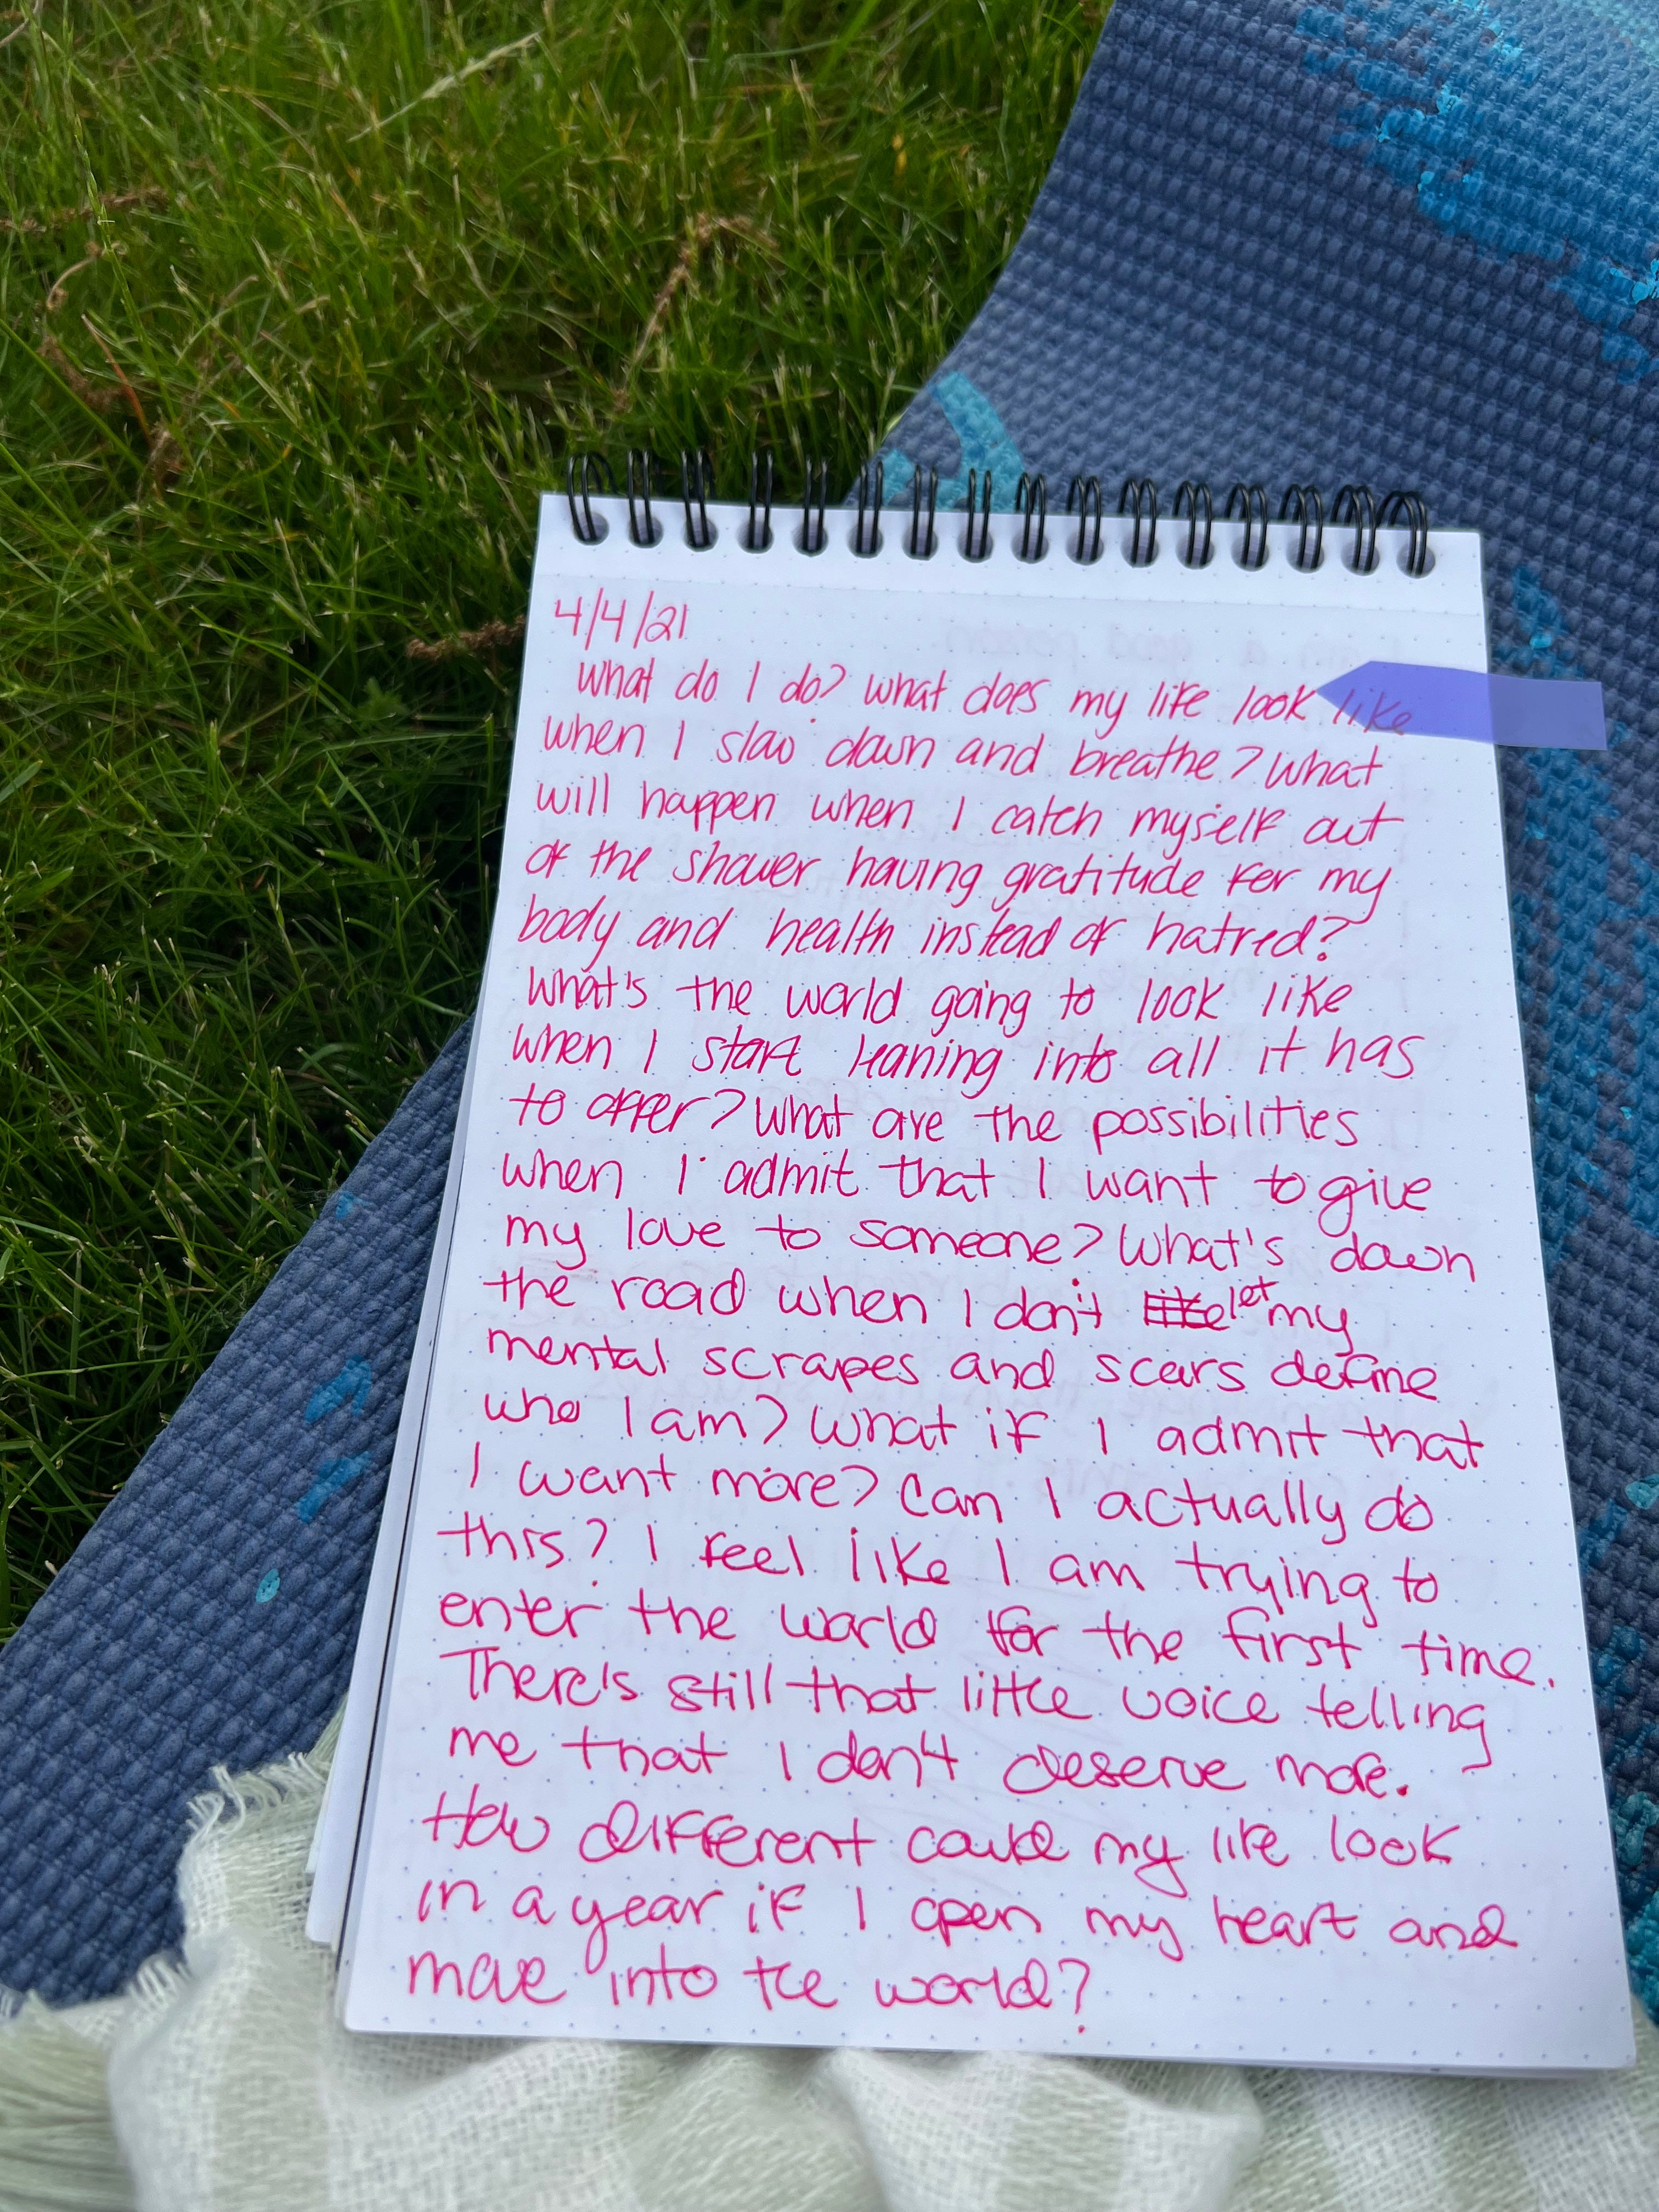 4/4/21
What do I do? What does my life look like
when I slow down and breathe? What
will happen when I catch myself out
of the shower having gratitude for my
body and health instead of hatred?
What's the world going to look like
when I start leaning into all it has
to offer? What are the possibilities
when I admit that I want to give
my love to someone? What's down
the road when I don't let my
mental scrapes and scars define
who I am? What if I admit that
I want more? Can I actually do
this? I feel like I am trying to
enter the world for the first time.
There's still that little voice telling
me that I don't deserve more.
How different could my life look
in a year if I open my heart and
move into the world?